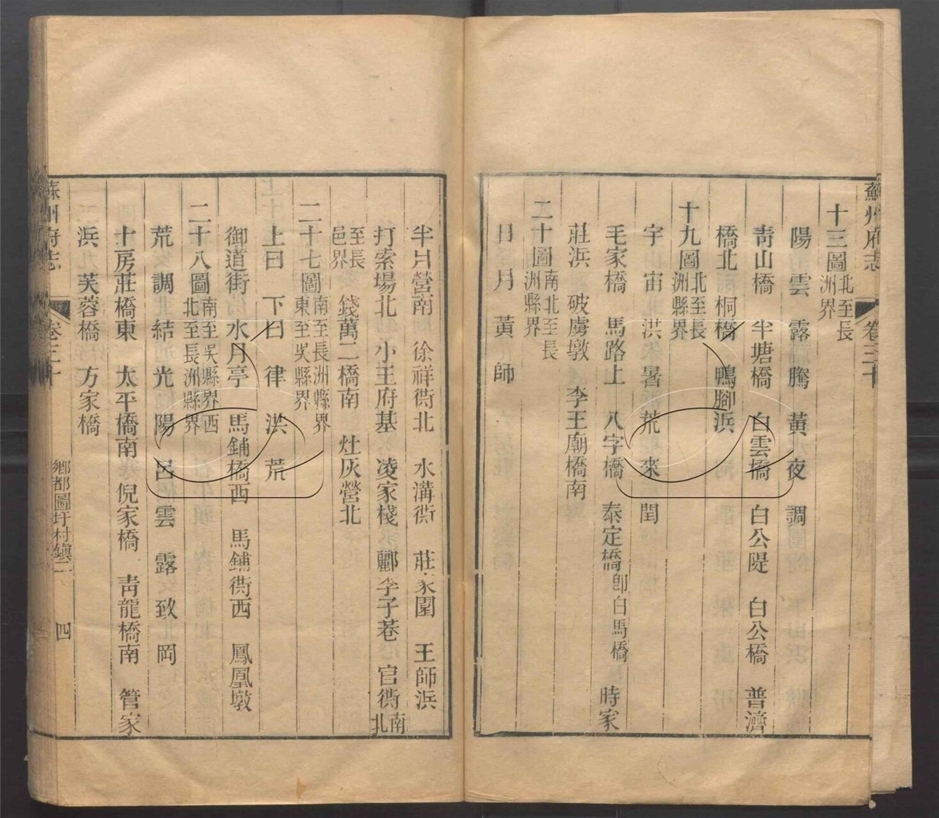 蘇州府志 卷三十
十三圖北至長洲界
陽 雲 露 騰 黃 夜 調
青山橋 半塘橋 白雲橋 白公隄 白公橋 普濟
橋北 桐橋 鴨腳浜
十九圖北至長洲縣界
宇 宙 洪 暑 荒 來 閏
毛家橋 馬路上 八字橋 泰定橋即白馬橋 時家
莊浜 破虜墩 李王廟橋南
二十圖南北至長洲縣界
日 月 黃 師
半月營南 徐祥衖北 水溝衖 莊家園 王師浜
打索場北 小王府基 凌家棧 酈李子巷 官衖南北
至長邑界 錢萬二橋南 灶灰營北
二十七圖南至長洲縣界東至吳縣界
上日 下日 律 洪 荒
御道街 水月亭 馬鋪橋西 馬鋪衖西 鳳凰墩
二十八圖南至吳縣界西北至長洲縣界
荒 調 結 光 陽 呂 雲 露 致 岡
十房莊橋東 太平橋南 倪家橋 青龍橋南 管家
浜 芙蓉橋 方家橋
蘇州府志 卷三十 鄉都圖圩村鎮二 四